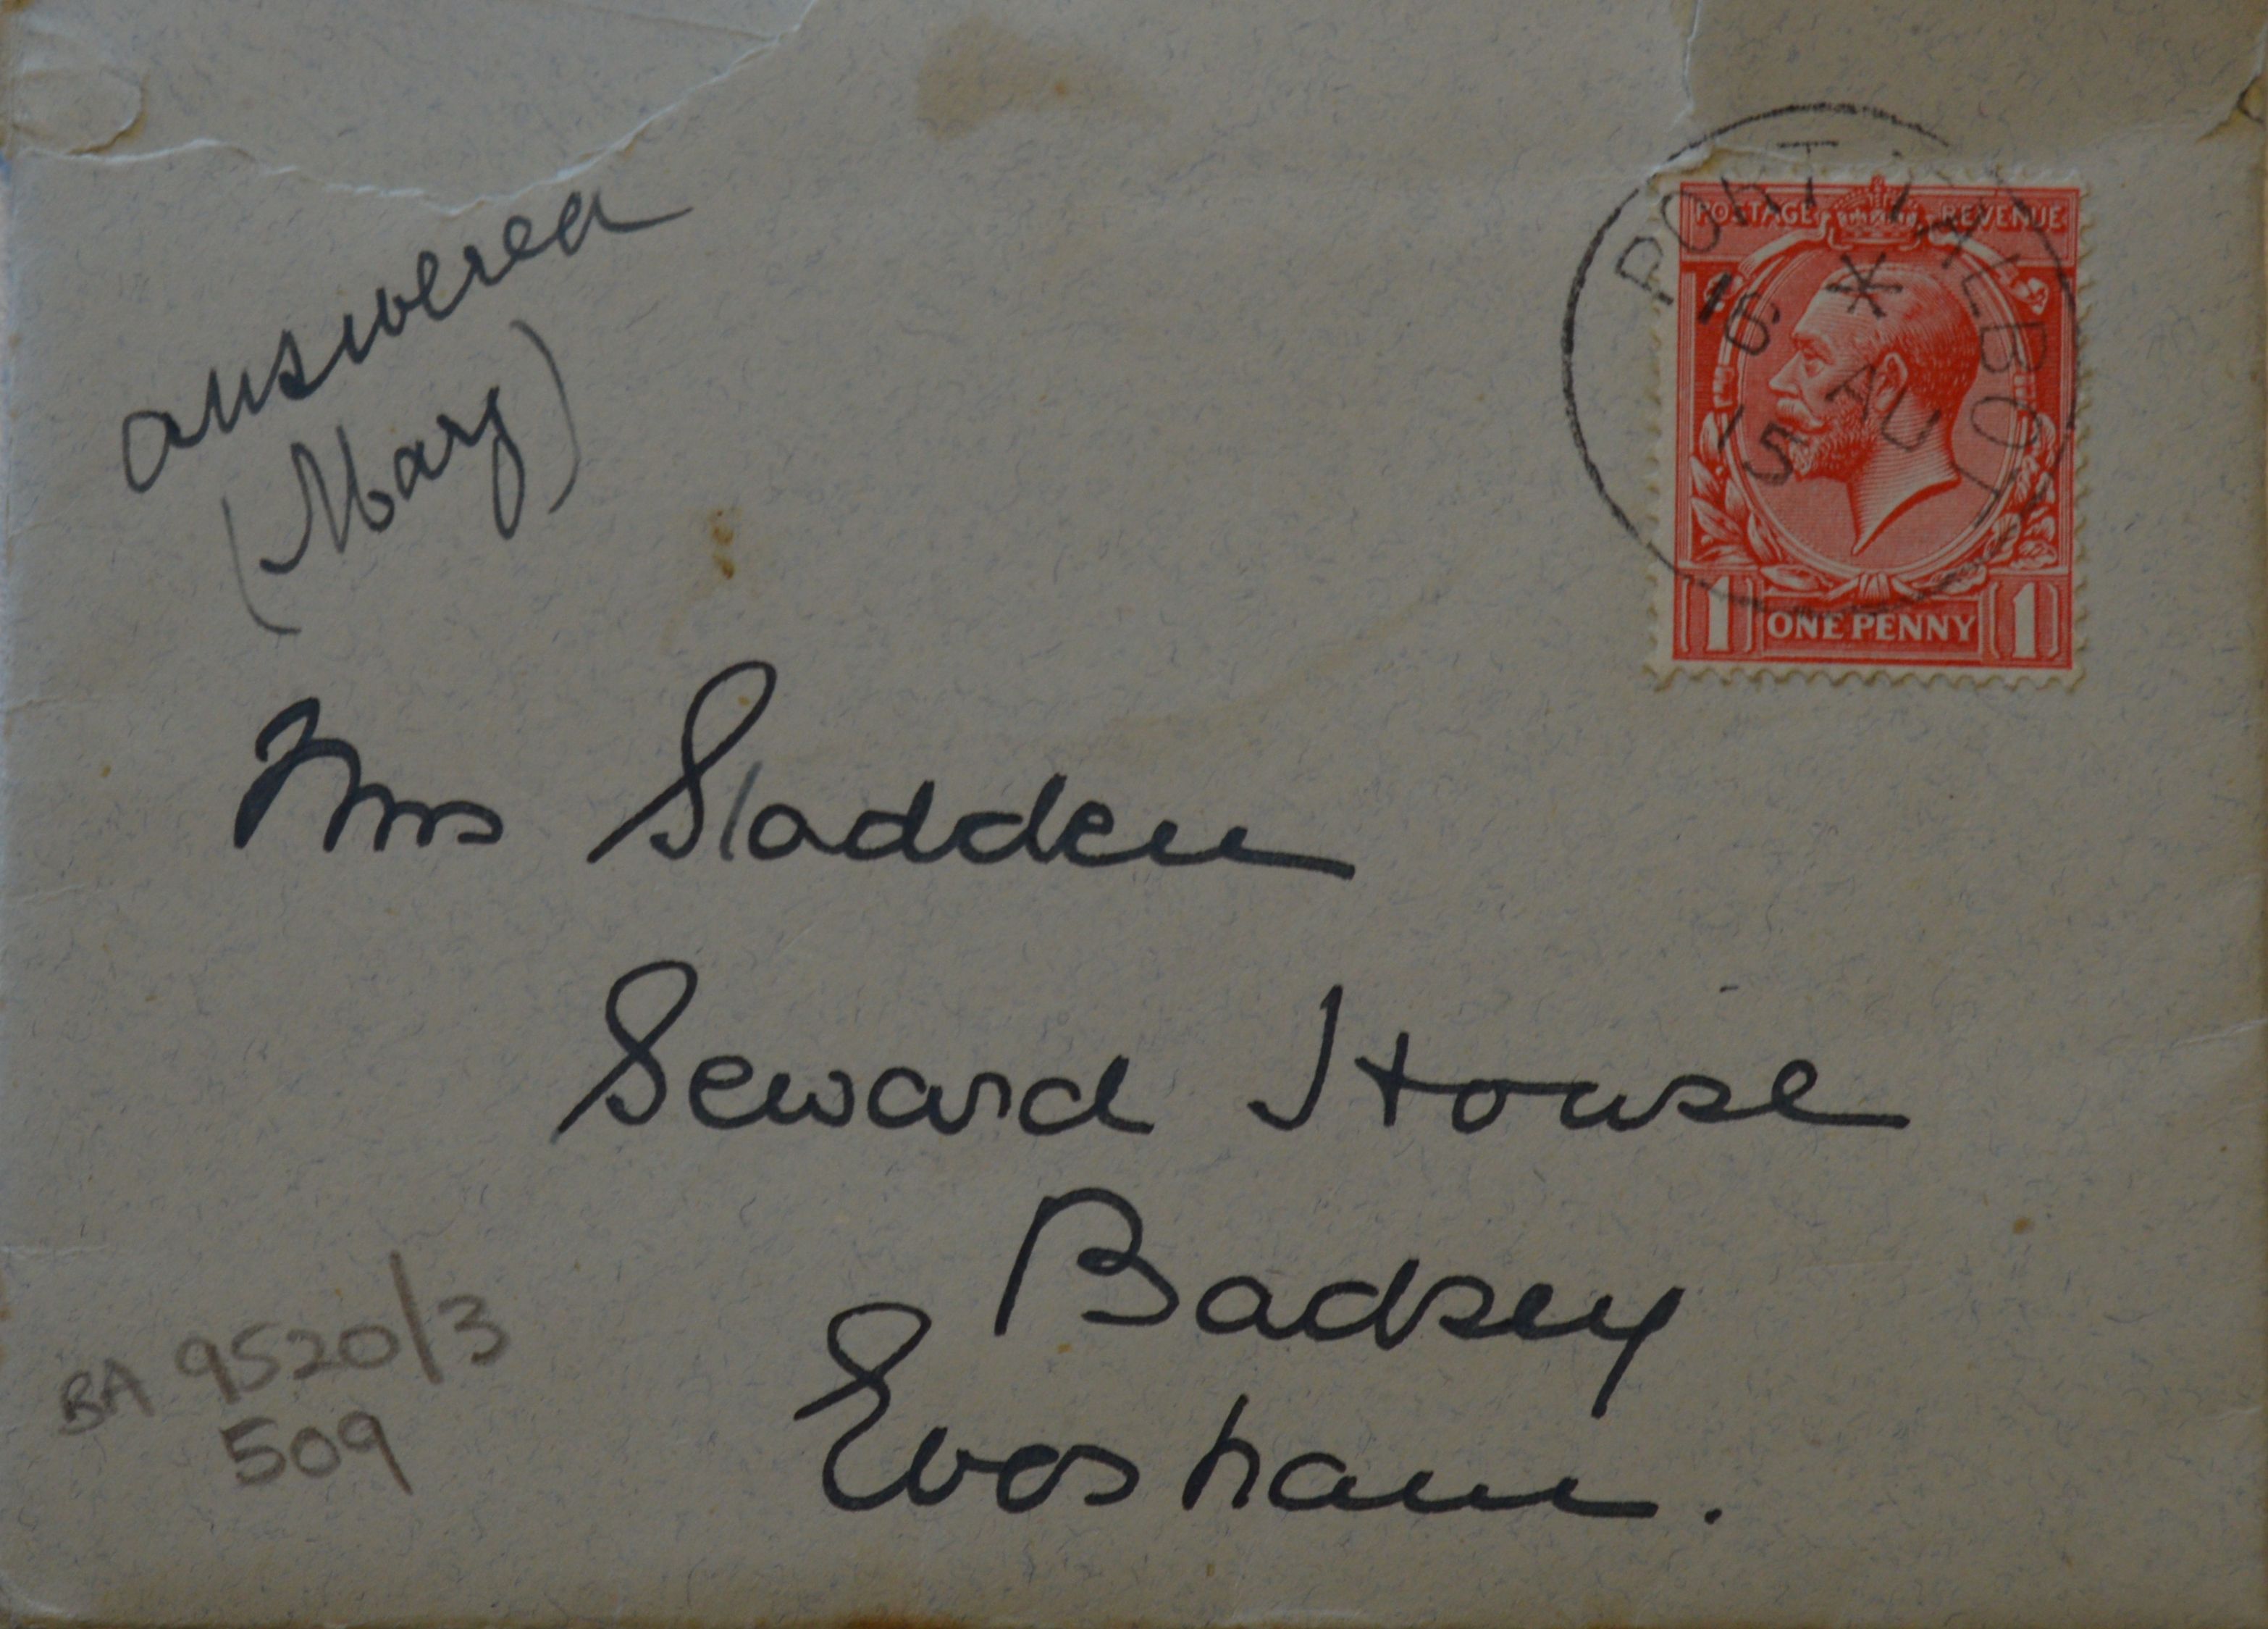 answered
(Mary)
PORT TALBOT
*
16 AU
15
POSTAGE REVENUE
1 ONE PENNY 1
Mrs Sladden
Seward House
Badsey
Evesham.
BA 9520/3
509